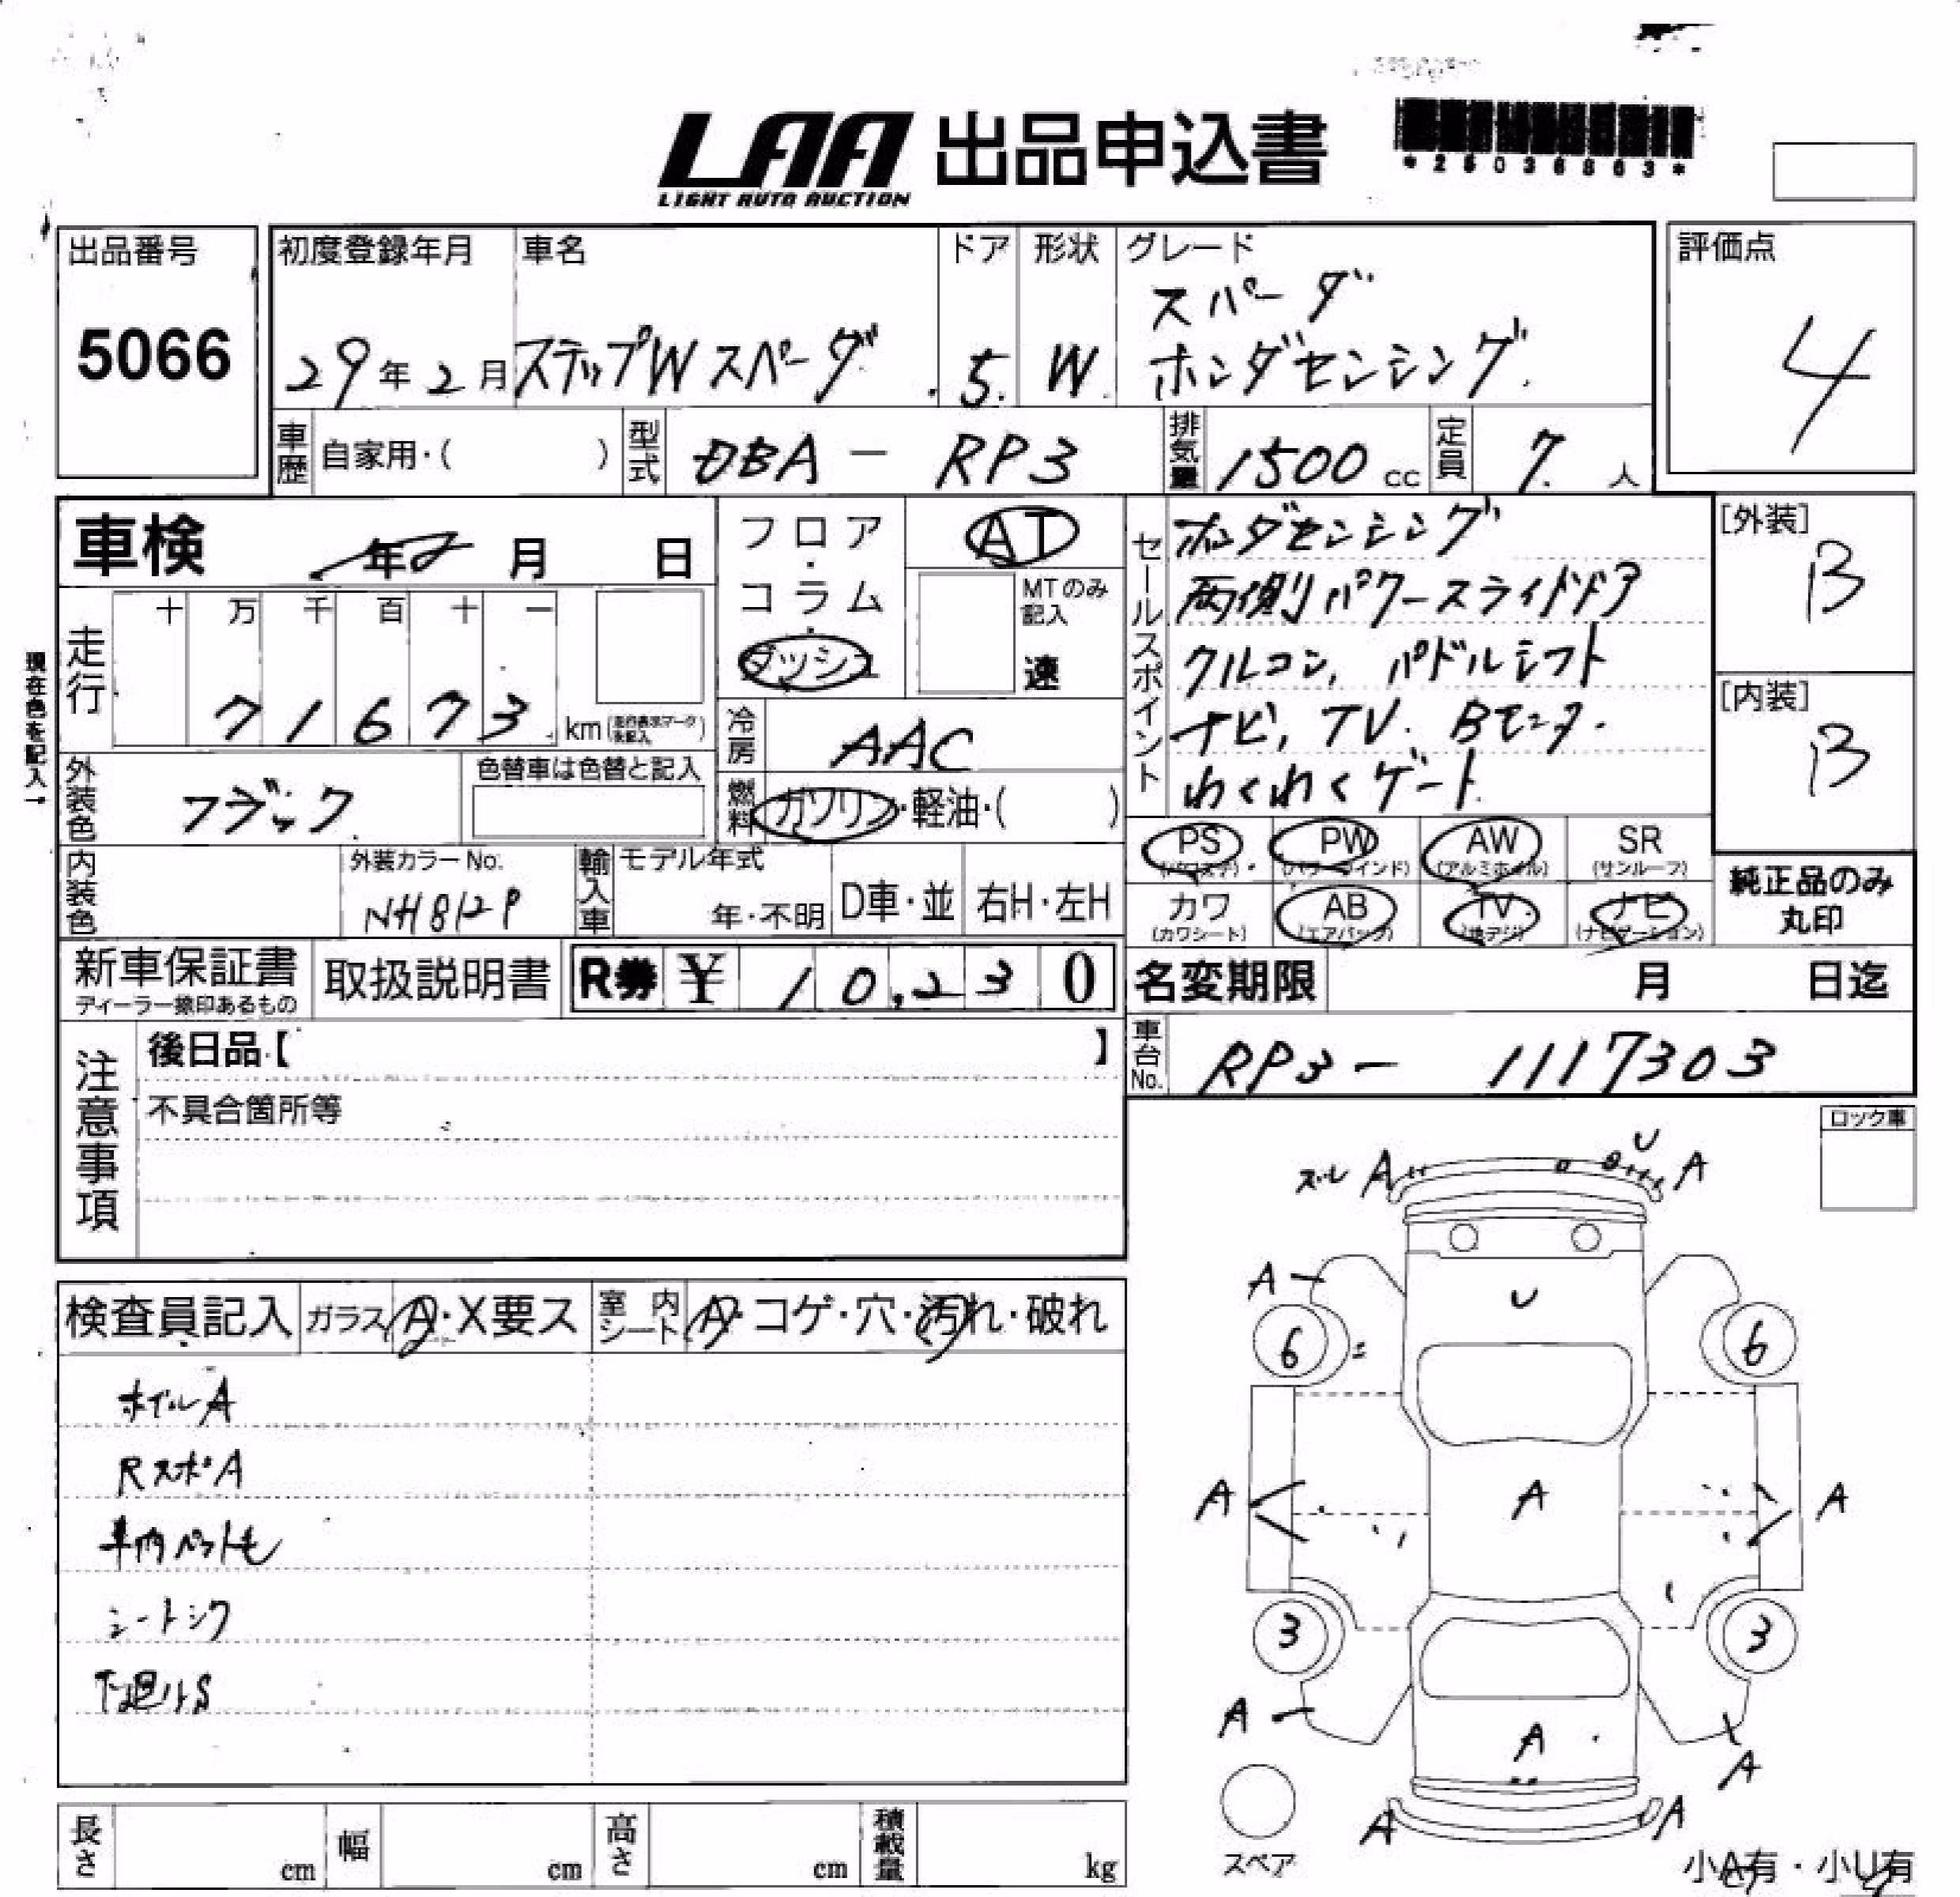 LAA 出品申込書
LIGHT AUTO AUCTION
*26036863*
出品番号
5066
初度登録年月
29年2月
車名
ステップWスパーダ
ドア
5
形状
W
グレード
スパーダ
ホンダセンシング
評価点
4
車歴 自家用・( )
型式 DBA-RP3
排気量 1500cc
定員 7人
車検 年 月 日
フロア・コラム・ダッシュ
AT
MTのみ記入
速
走行
十 万 千 百 十 一
7 1 6 7 3 km
現在色を記入→
外装色 ブラック
色替車は色替と記入
冷房 AAC
燃料 ガソリン・軽油・( )
内装色
外装カラーNo.
NH812P
輸入車
モデル年式
年・不明
D車・並
右H・左H
セールスポイント
ホンダセンシング
両側パワースライドドア
クルコン, パドルシフト
ナビ, TV. Bモニタ.
わくわくゲート
[外装]
B
[内装]
B
PS PW AW SR
(パワステ) (パワーウインド) (アルミホイル) (サンルーフ)
カワ AB TV ナビ
(カワシート) (エアバック) (地デジ) (ナビゲーション)
純正品のみ
丸印
新車保証書
ディーラー捺印あるもの
取扱説明書
R券 ¥ 10,230
名変期限 月 日迄
車台No. RP3-1117303
注意事項
後日品【 】
不具合箇所等
ロック車
検査員記入
ガラス A・X要ス
室内シート A・コゲ・穴・汚れ・破れ
ホイルA
RスポA
車内ペット毛
シートシワ
下廻りS
ズレ A U A
A
U
6 6
A A A
3 3
A
A
A
A A
スペア
小A有・小U有
長さ cm
幅 cm
高さ cm
積載量 kg